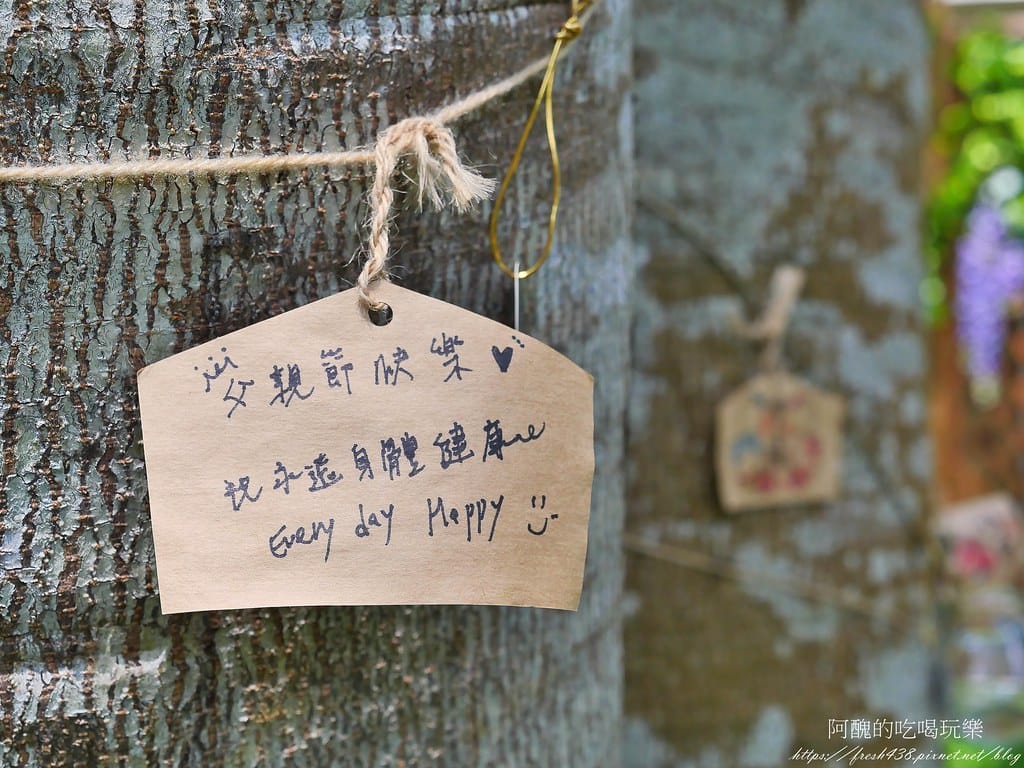 父親節快樂♥
祝永遠身體健康
Every day Happy :)
阿醜的吃喝玩樂
https://fresh438.pixnet.net/blog